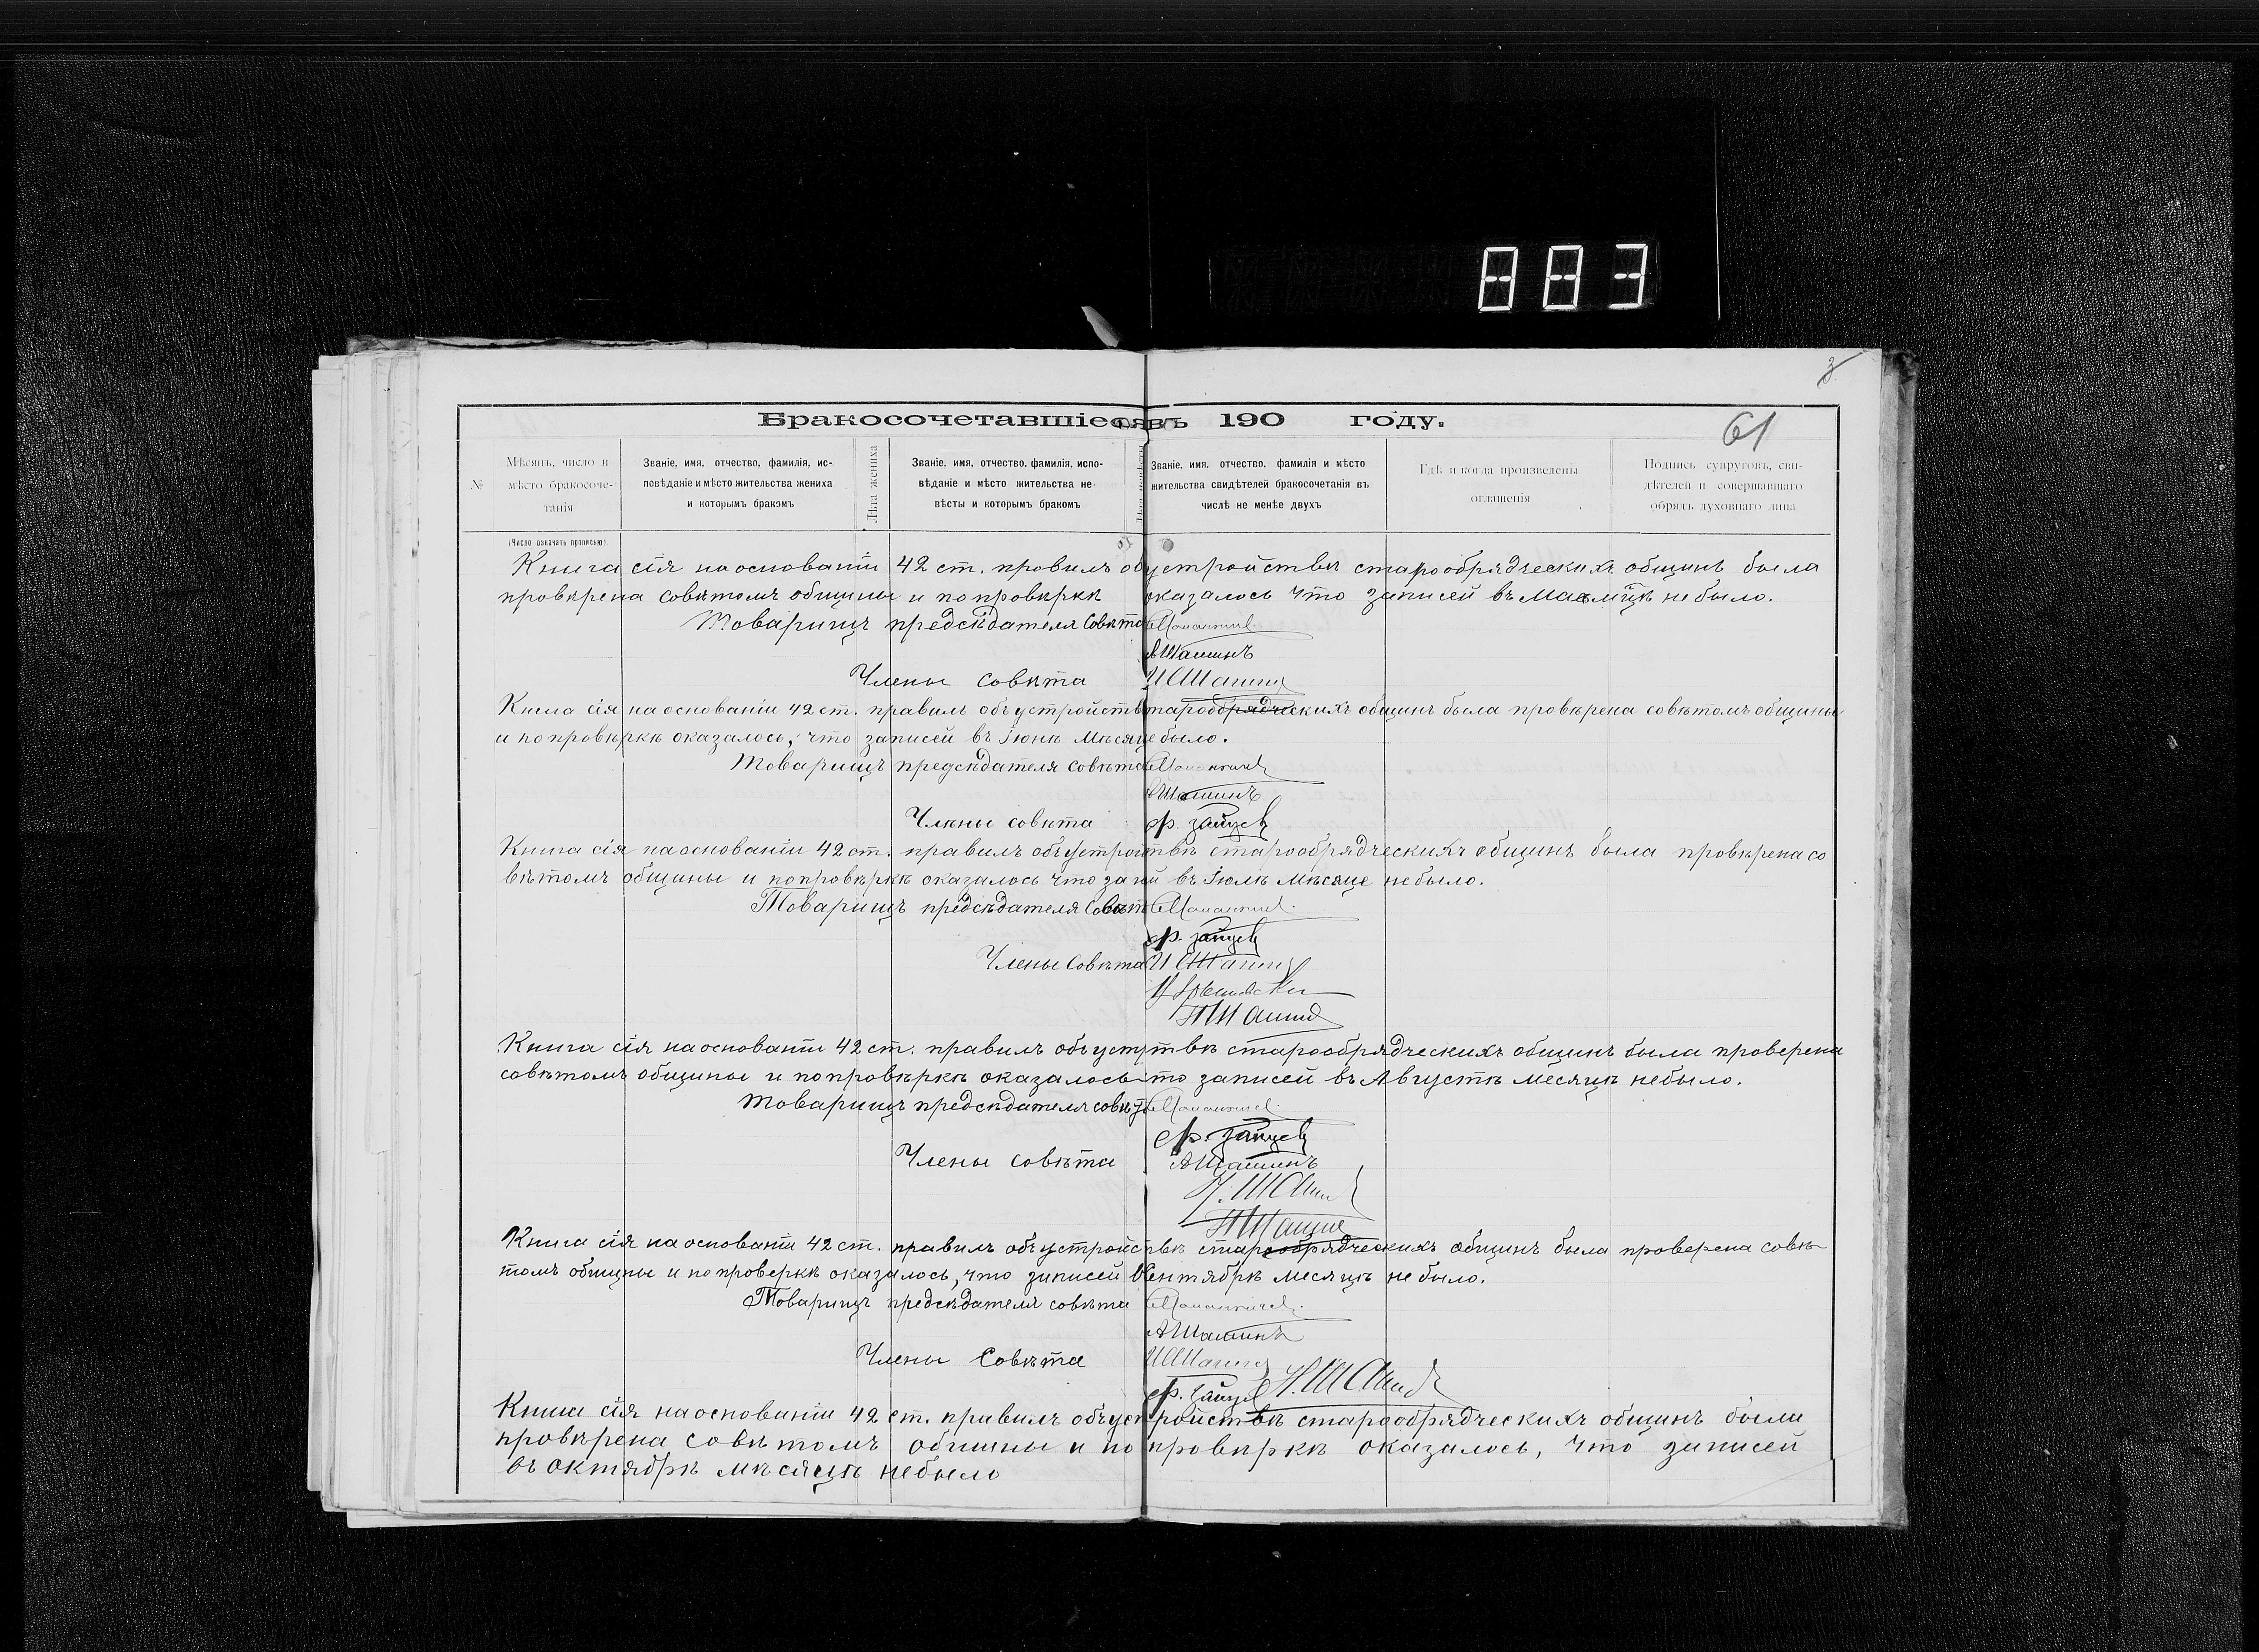 883
3
61
Бракосочетавшіеся въ 190 году.
№
Мѣсяцъ, число и мѣсто бракосоче-танія
(Число означать прописью)
Званіе, имя, отчество, фамилія, ис-повѣданіе и мѣсто жительства жениха и которымъ бракомъ
Лѣта жениха
Званіе, имя, отчество, фамилія, испо-вѣданіе и мѣсто жительства не-вѣсты и которымъ бракомъ
Званіе, имя, отчество, фамилія и мѣсто жительства свидѣтелей бракосочетанія въ числѣ не менѣе двухъ
Гдѣ и когда произведены оглашенія
Подпись супруговъ, сви-дѣтелей и совершавшаго обрядъ духовнаго лица
Книга сія на основаніи 42 ст. правилъ об устройствѣ старообрядческихъ общинъ была
провѣрена совѣтомъ общины и по провѣркѣ оказалось что записей въ Маѣ мцѣ не было.
Товарищъ предсѣдателя Совѣта
АШашинъ
Члены совѣта ИСШашинъ
Книга сія на основаніи 42 ст. правилъ объ устройств тарообрядческихъ общинъ была провѣрена совѣтомъ общины
и по провѣркѣ оказалось, что записей въ Іюнѣ мѣсяце было.
Товарищъ предсѣдателя совѣта
АШашинъ
Члены совѣта Ф. Зайцев
Книга сія на основаніи 42 ст. правилъ объ устрой твѣ старообрядческихъ общинъ была провѣрена со
вѣтомъ общины и по провѣркѣ оказалось что за й въ Іюлѣ мѣсяце не было.
Товарищъ предсѣдателя Совѣт
Ф. Зайцев
Члены Совѣта
Книга сія на основаніи 42 ст. правилъ объ уст твѣ старообрядческихъ общинъ была проверена
совѣтомъ общины и по провѣркѣ оказалось то записей въ Августѣ месяцѣ не было.
Товарищъ предсѣдателя совѣта
Ф. Зайцев
Члены совѣта АШашинъ
Книга сія на основаніи 42 ст. правилъ объ устройствѣ старообрядческихъ общинъ была проверена совѣ-
томъ общины и по проверкѣ оказалось, что записей Сентябрѣ месяцѣ не было.
Товарищъ предсѣдателя совѣта
АШашинъ
Члены Совѣта
Ф. Зайцев
Книга сія на основаніи 42 ст. правилъ объ устройствѣ старообрядческихъ общинъ была
провѣрена совѣтомъ общины и по провѣркѣ оказалось, что записей
въ октябрѣ мѣсяцѣ не было